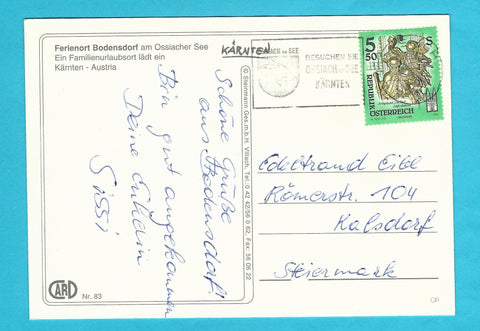 Ferienort Bodensdorf am Ossiacher See
Ein Familienurlaubsort lädt ein
Kärnten - Austria
KÄRNTEN
Schöne Grüße
aus Bodensdorf!
Bin gut angekommen
Deine Enkelin
Sissi
© Steinmann Ges.m.b.H. Villach, Tel. 0 42 42/56 0 62, Fax: 56 06 22
CARD
Nr. 83
BESUCHEN SIE
OSSIACH AM SEE
KÄRNTEN
5 50
S
REPUBLIK
ÖSTERREICH
Edeltrand Eibl
Römerstr. 104
Kalsdorf
Steiermark
CP